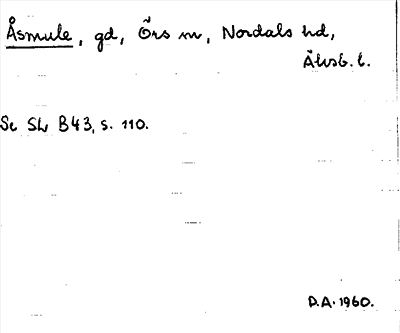 Åsmule, gd, Örs sn, Nordals hd,
Älvsb. l.
Se SL B43, s. 110.
D.A. 1960.